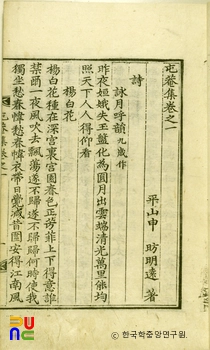 屯菴集卷之一
平山申 昉明遠 著
詩
詠月呼韻 九歲作
昨夜姮娥失玉盤化為圓月出雲端清光萬里能均
照天下人人得仰看
楊白花
楊白花種在深宮裏宮園春色正芳菲上下得意誰
禁爾一夜風吹去飄蕩遂不歸遂不歸歸何時使我
獨坐愁春幃愁春幃衣帶日覺減昔圍安得江南風
屯菴集卷之一
ⓒ 한국학중앙연구원